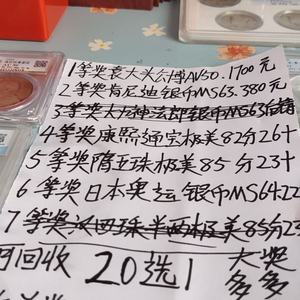 1等奖袁大头公博AU50.1700元
2等奖肯尼迪银币MS63.380元
3等奖太阳神法郎银币MS63后精
4等奖康熙通宝极美82分26十
5等奖隋五珠极美85分23十
6等奖日本奥运银币MS6422
7等奖汉四珠半两极美85分2
可回收 20选1 大奖
多多